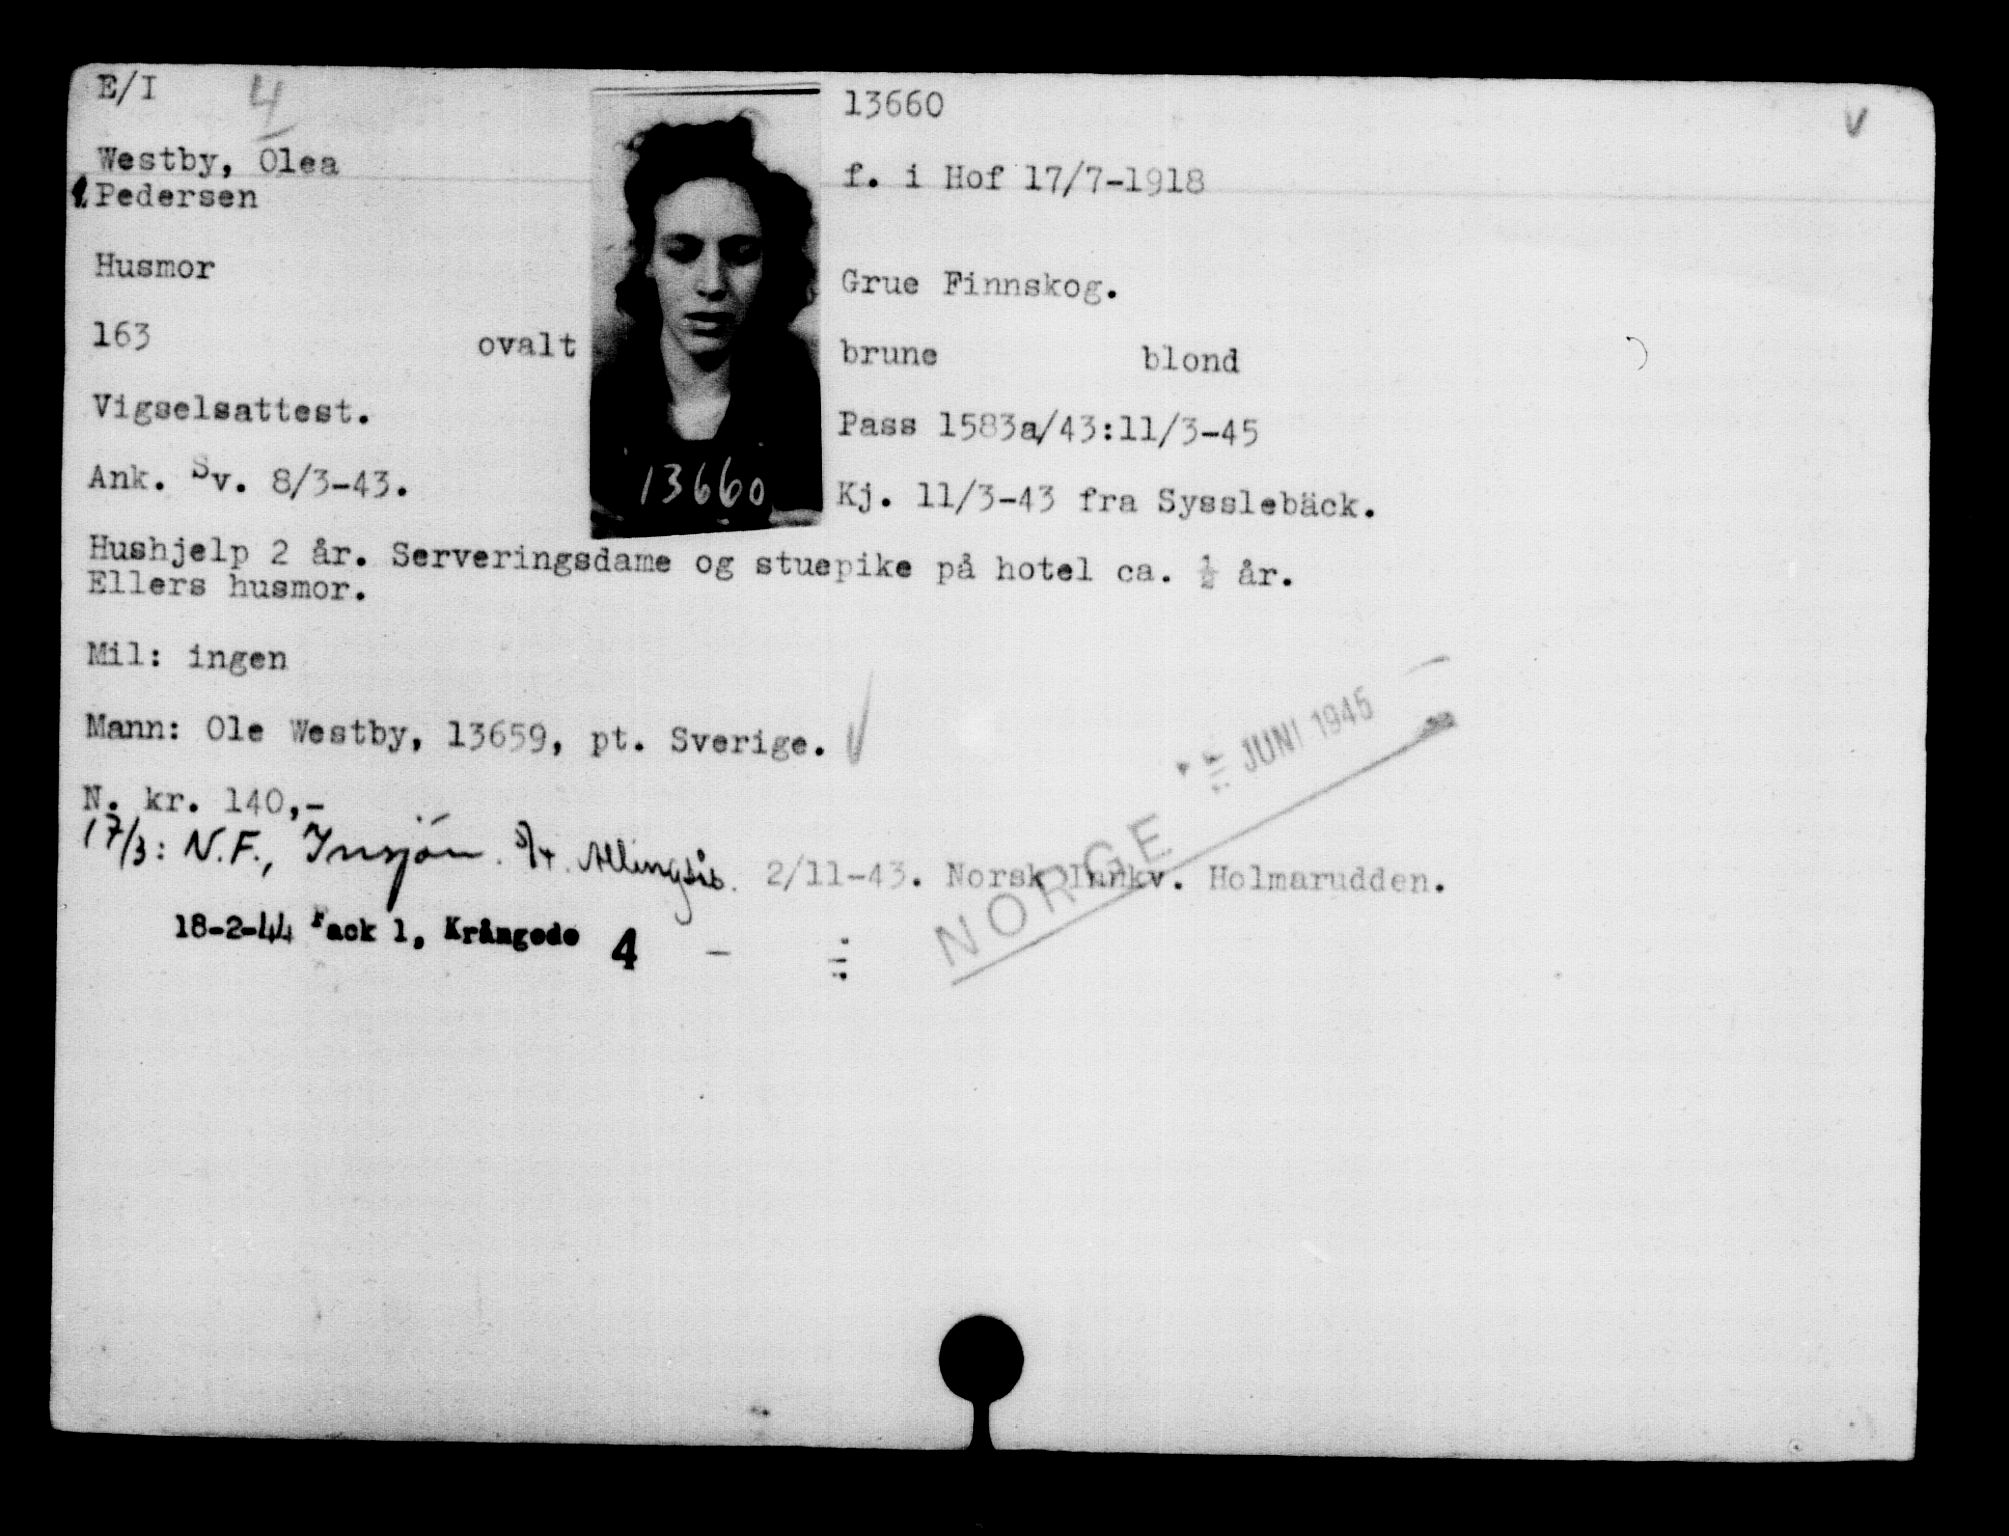 E/I 4 13660 v
Westby, Olea f. i Hof 17/7-1918
f. Pedersen
Husmor Grue Finnskog.
163 ovalt brune blond
Vigselsattest. Pass 1583a/43:11/3-45
Ank. Sv. 8/3-43. Kj. 11/3-43 fra Sysslebäck.
13660
Hushjelp 2 år. Serveringsdame og stuepike på hotel ca. ½ år.
Ellers husmor.
Mil: ingen
Mann: Ole Westby, 13659, pt. Sverige. v
JUNI 1945
N. kr. 140,-
17/3: N.F., Insjön. Alingsås. 2/11-43. Norsk Innkv. Holmarudden.
NORGE
18-2-44 Fack 1, Krångede 4 -